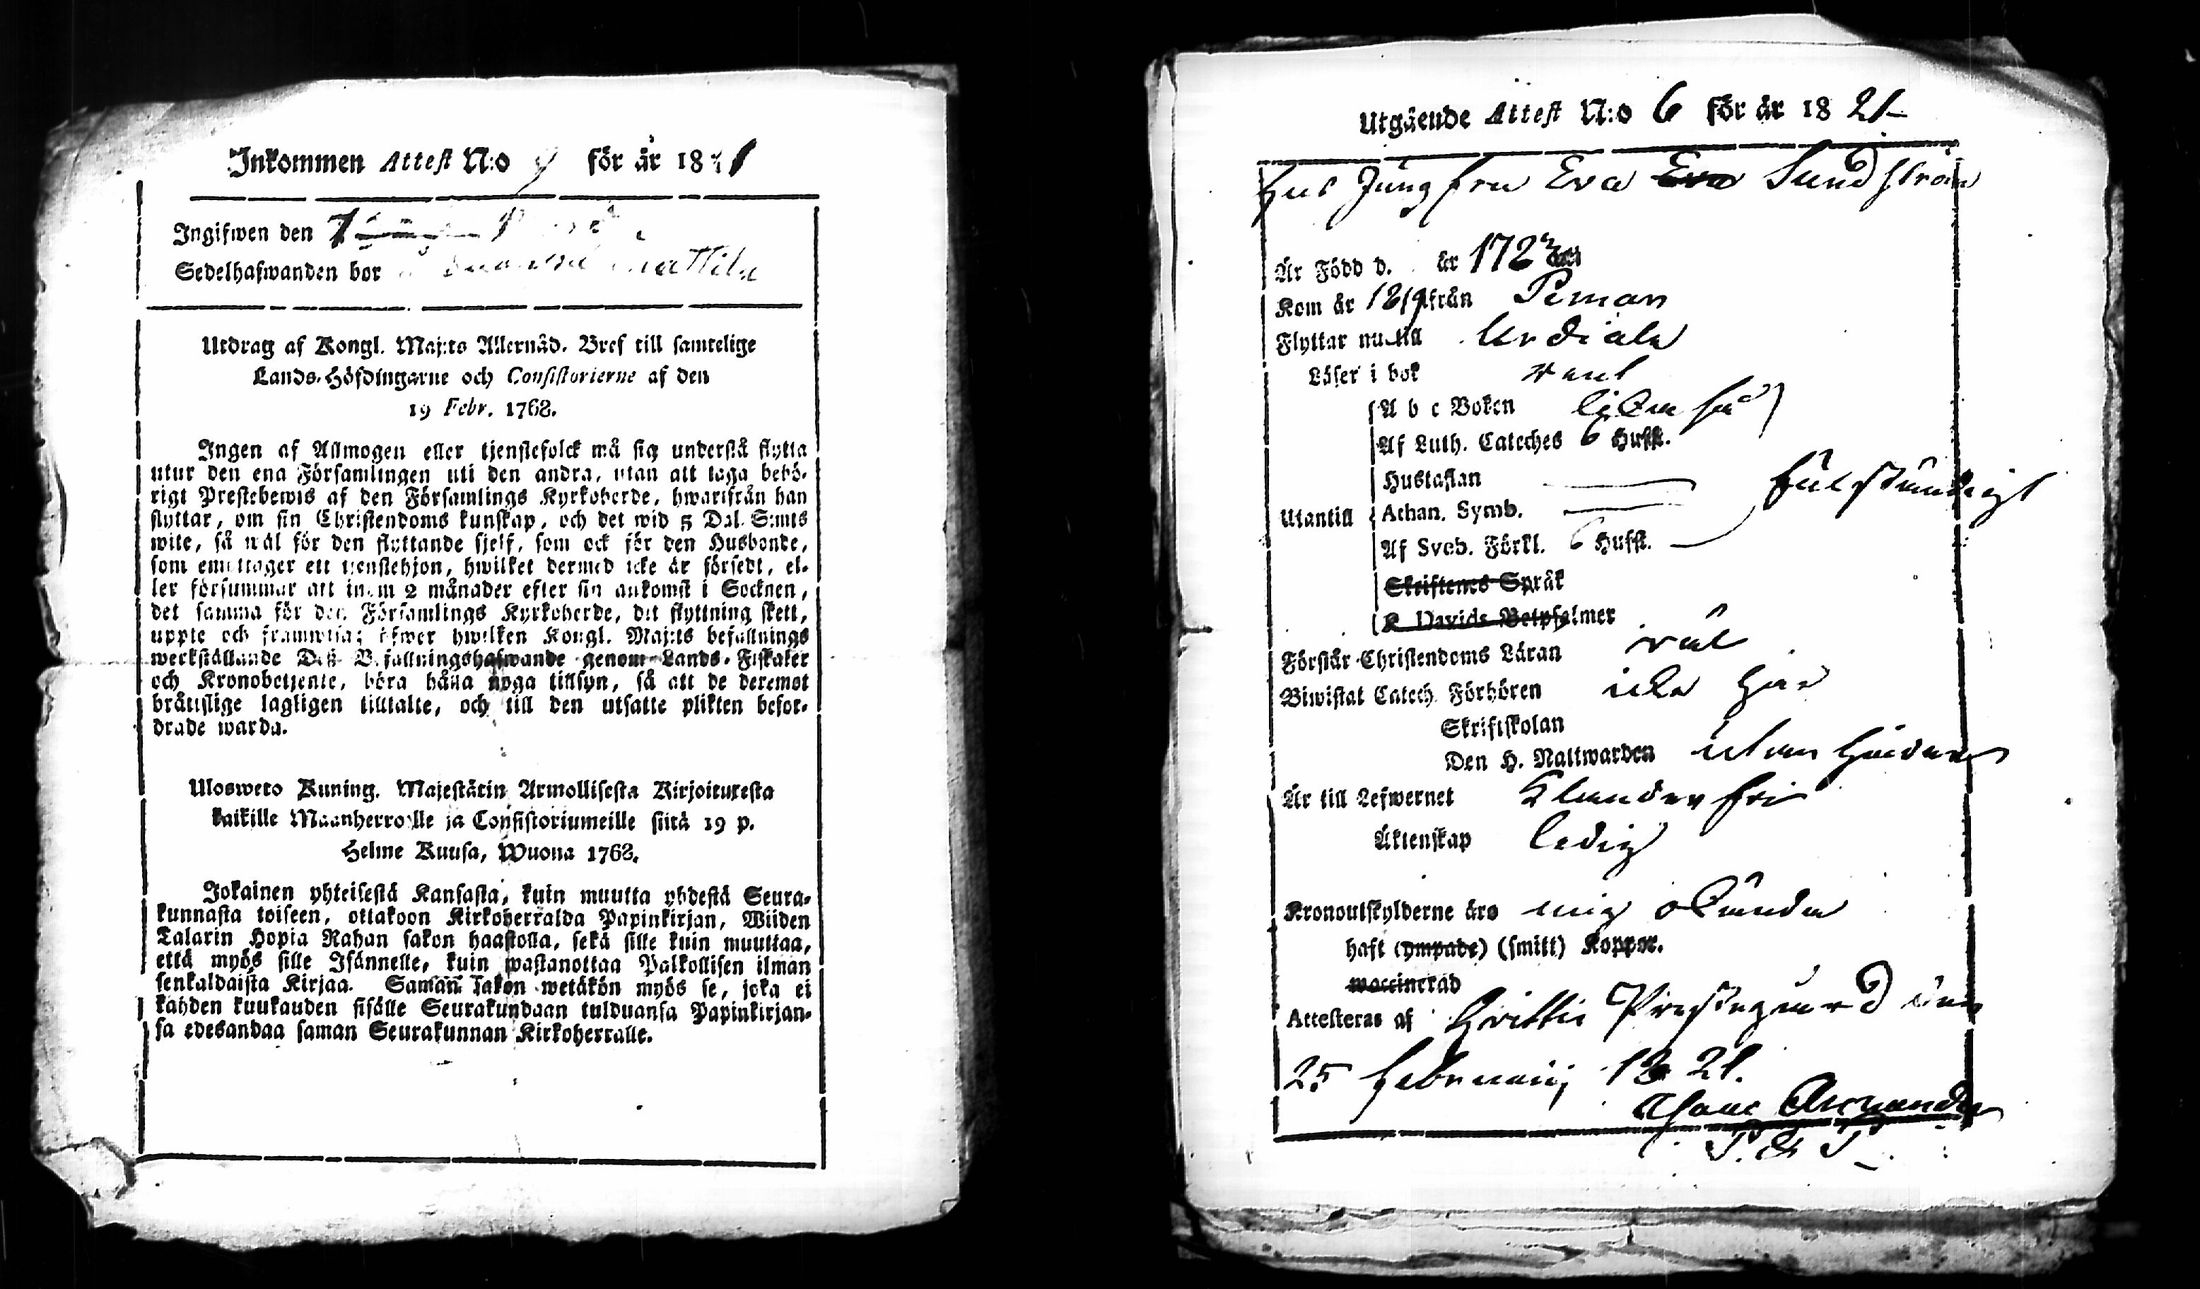 Inkommen Attest N:o 9 för år 1821
Ingifwen den
Sedelhafwanden bor
Utdrag af Kongl. Maj:ts Allernåd. Bref till samtelige
Lands-Höfdingarne och Consistorierne af den
19 Febr. 1768.
Ingen af Allmogen eller tjenstefolck må sig understå flytta
utur den ena Församlingen uti den andra, utan att taga behö-
rigt Prestebewis af den Församlings Kyrkoherde, hwarifrån han
flyttar, om sin Christendoms kunskap, och det wid 5 Dal. S:mts
wite, så wäl för den flyttande sjelf, som ock för den Husbonde,
som emottager ett tjenstehjon, hwilket dermed icke är försedt, el-
ler försummar att inom 2 månader efter sin ankomst i Socknen,
det samma för den Församlings Kyrkoherde, dit flyttning skett,
uppte och framwisa; öfwer hwilken Kongl. Maj:ts befallnings
werkställande Deß Befallningshafwande genom Lands-Fiskaler
och Kronobetjente, böra hålla noga tillsyn, så att de deremot
bråttslige lagligen tilltalte, och till den utsatte plikten befor-
drade warda.
Ulosweto Kuning. Majestätin Armollisesta Kirjoituresta
kaikille Maanherroille ja Consistoriumeille siitä 19 p.
Helme Kuusa, Wuona 1768.
Jokainen yhteisestä Kansasta, kuin muutta yhdestä Seura-
kunnasta toiseen, ottakoon Kirkoherralda Papinkirjan, Wiiden
Talarin Hopia Rahan sakon haastolla, sekä sille kuin muuttaa,
että myös sille Isännelle, kuin wastanottaa Palkollisen ilman
senkaldaista Kirjaa. Saman Sakon wetäkön myös se, joka ei
kahden kuukauden sisälle Seurakundaan tulduansa Papinkirjan-
sa edesandaa saman Seurakunnan Kirkoherralle.
Utgående Attest N:o 6 för år 1821
Hus Jungfru Eva Eva Sundström
Är Född d. år 1727
Kom år 1819 från Pemar
Flyttar nu till Urdiala
Läser i bok rent
A b c Boken lika så
Af Luth. Cateches 6 Hufst.
Hustaflan
Utantill Athan. Symb. fulständigt
Af Sveb. Förkl. 6 Hufst.
Skriftenes Språk
K. Davids Botpsalmer
Förstår Christendoms Läran wäl
Biwistat Catech. Förhören icke här
Skriftskolan
Den H. Nattwarden utan hinder
Är till Lefwernet Klanderfri
Äktenskap ledig
Kronoutskylderne äro mig okända
haft (ympade) (smitt) Koppor.
waccinerad
Attesteras af Hvittis Prestegård den
25 Februarij 1821.